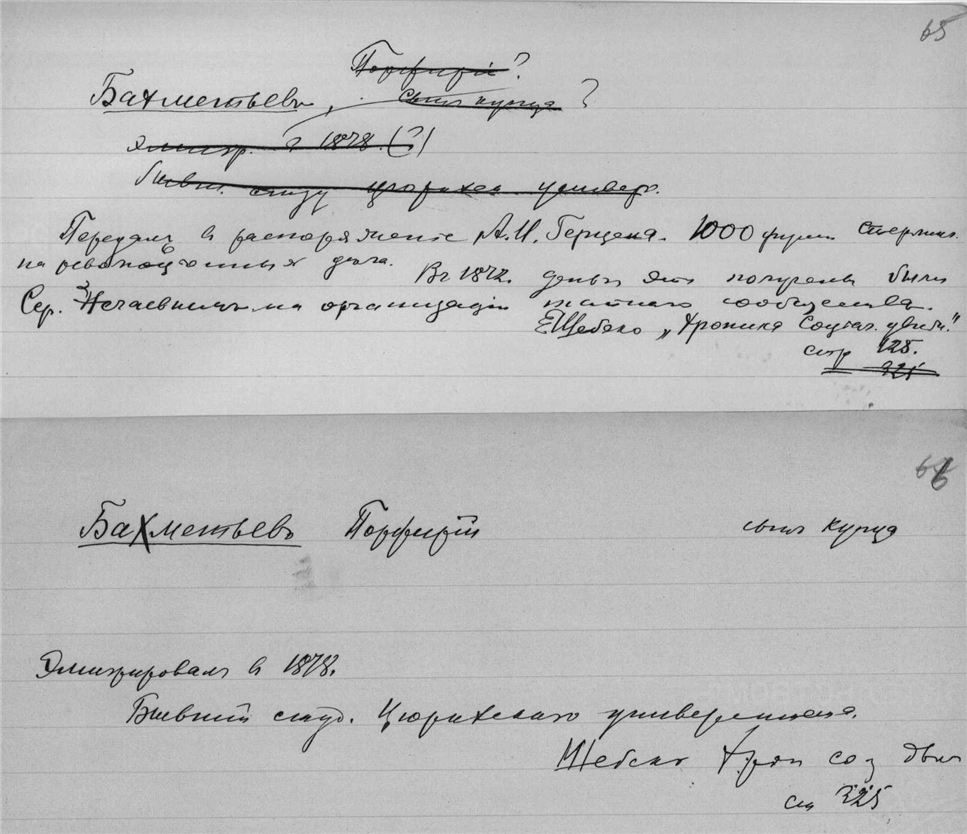 65
Порфирій?
Бахметьевъ, сынъ купца ?
Эмигр. в 1878. (?)
бывш. студ цюрихск универс.
Передалъ в распоряженіе А.И. Герцена. 1000 фунт стерлинг.
на революціонныя дела. Въ 1872. деньги эти получены были
Сер. Нечаевымъ на организацію тайнаго сообщества.
Шебеко „Хроника Социал. движ."
стр 128.
321
66
Бахметьевъ Порфирій сынъ купца
Эмигрировалъ в 1878.
Бывшій студ. Цюрихскаго университета.
Шебеко Хрон соц движ
стр 325